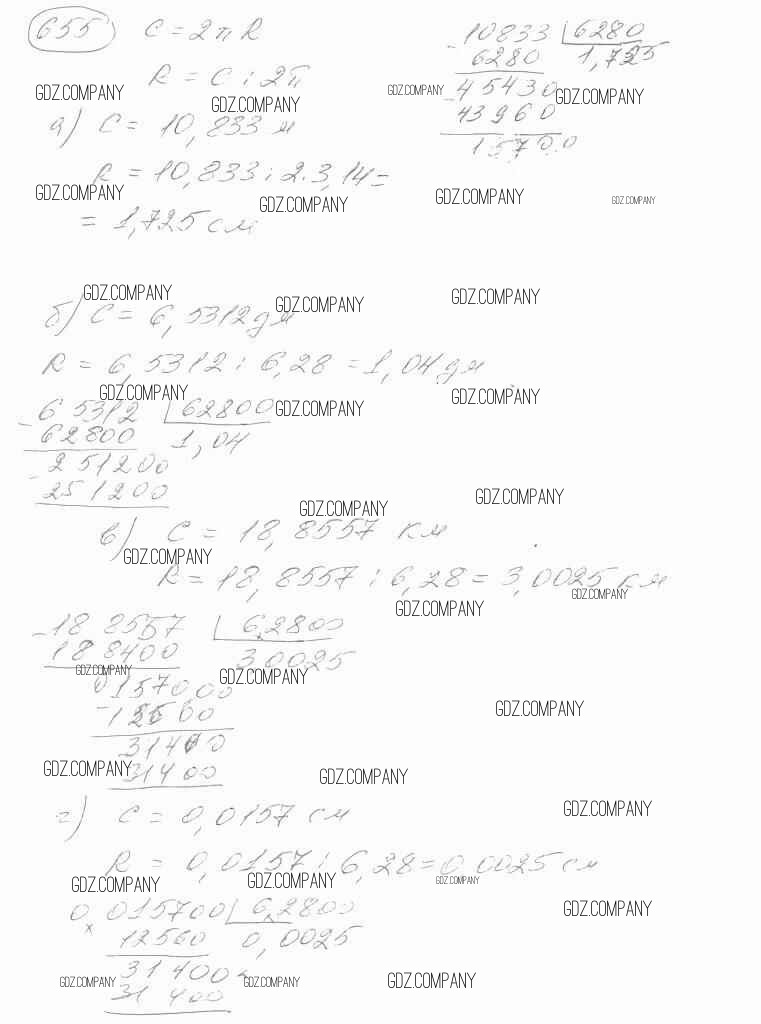 655 C = 2πR
R = C : 2π
GDZ.COMPANY GDZ.COMPANY
а) C = 10,833 м
R = 10,833 : 2 · 3,14 =
GDZ.COMPANY GDZ.COMPANY
= 1,725 см
10833 6280
6280 1,725
GDZ.COMPANY GDZ.COMPANY
45430
43960
15700
GDZ.COMPANY GDZ.COMPANY
GDZ.COMPANY GDZ.COMPANY GDZ.COMPANY
б) C = 6,5312 дм
R = 6,5312 : 6,28 = 1,04 дм
GDZ.COMPANY GDZ.COMPANY GDZ.COMPANY
65312 62800
62800 1,04
251200
251200
GDZ.COMPANY GDZ.COMPANY
в) C = 18,8557 км
GDZ.COMPANY
R = 18,8557 : 6,28 = 3,0025 км
GDZ.COMPANY GDZ.COMPANY
188557 6,2800
188400 3,0025
GDZ.COMPANY GDZ.COMPANY
0157000
12560
GDZ.COMPANY
31400
31400
GDZ.COMPANY GDZ.COMPANY
г) C = 0,0157 см
GDZ.COMPANY
R = 0,0157 : 6,28 = 0,0025 см
GDZ.COMPANY GDZ.COMPANY GDZ.COMPANY
0,015700 6,2800
GDZ.COMPANY
12560 0,0025
31400
31400
GDZ.COMPANY GDZ.COMPANY GDZ.COMPANY